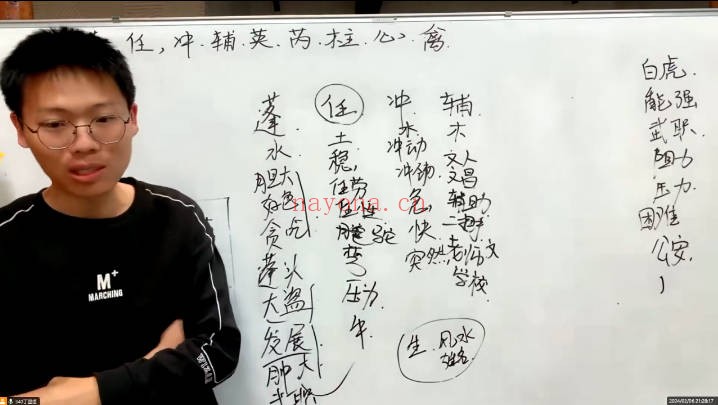 任,冲.辅.英.芮.柱.心.禽.
蓬
水
胆大
好色
贪吃
蓬头
大盗
发展
肿大
任
土
稳,
任劳
任
驼
弯
压力
牛.
冲.
木
冲动
冲动
急,
快
突然
辅
木
文人
文昌
辅助
二把手
老师文
学校.
生.风水
姓名
白虎.
能强
武职
阻力
压力
困难
公安,
M+
MARCHING
nayona.cn
2024/02/06 21:28:17